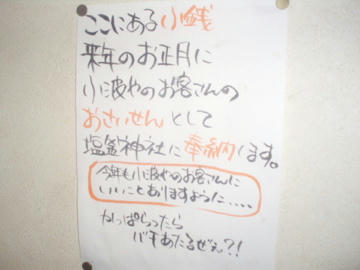 ここにある小銭
来年のお正月に
小波やのお客さんの
おさいせんとして
塩釜神社に奉納します。
今年も小波やのお客さんに
いいことありますように.....
かっぱらったら
バチあたるぜぇ?!